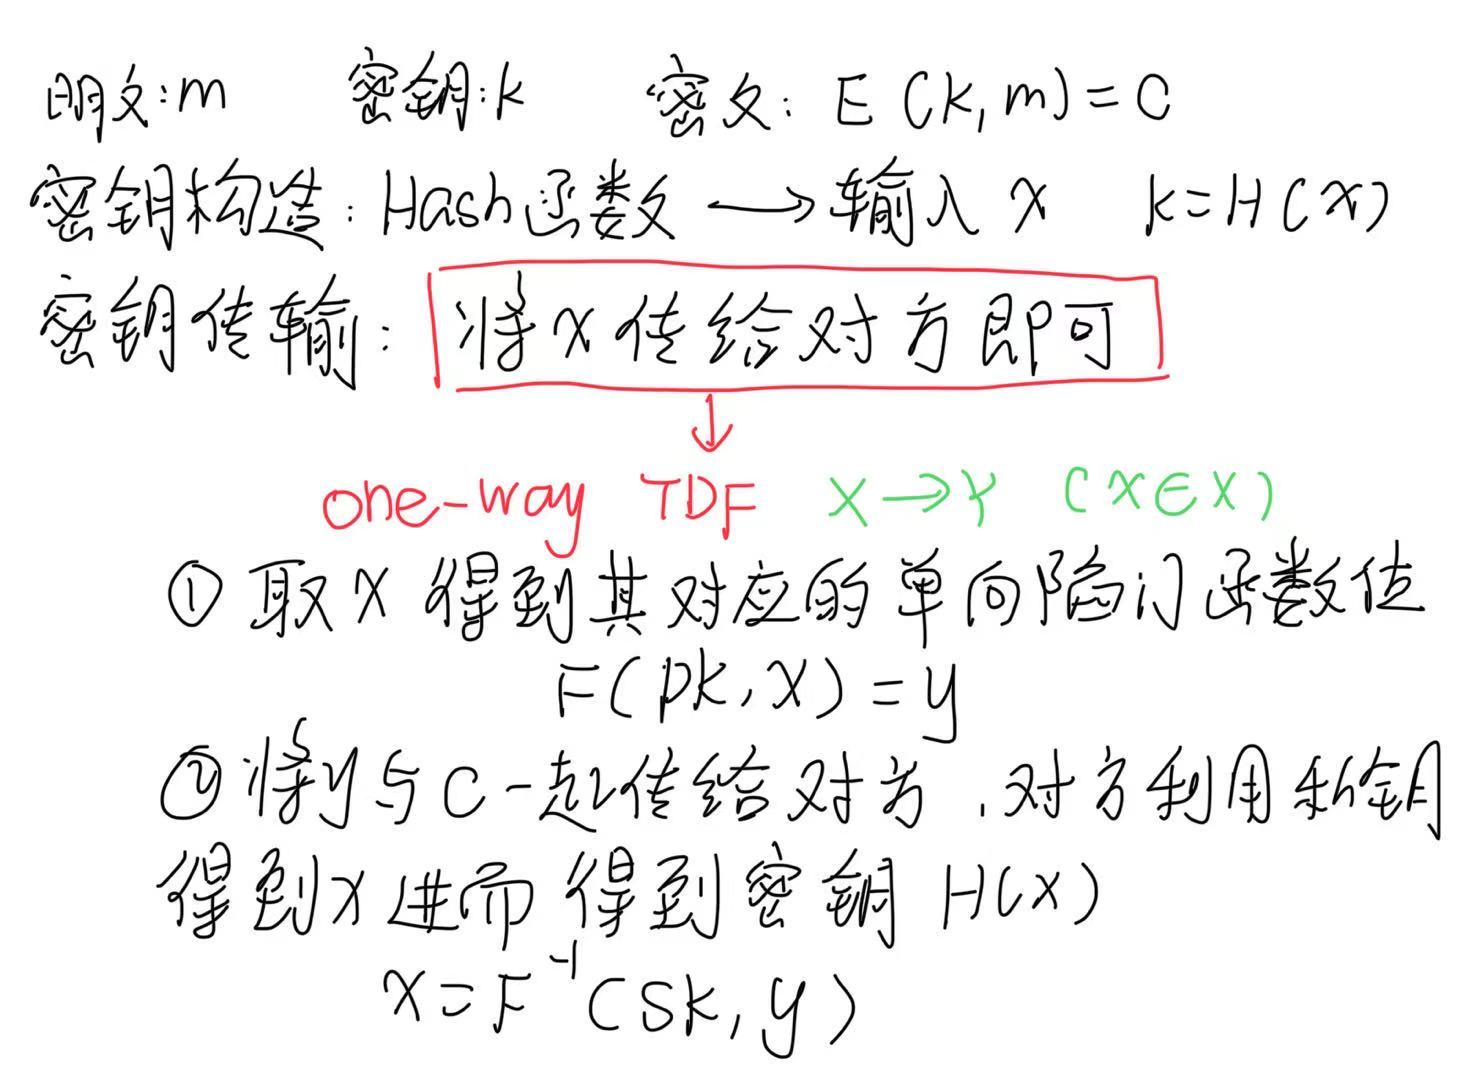 明文:m 密钥:k 密文: E(k,m)=C
密钥构造:Hash函数→输入x k=H(x)
密钥传输: 将x传给对方即可
↓
one-way TDF X→Y (x∈X)
①取x得到其对应的单向陷门函数值
F(pk,x)=y
②将y与C一起传给对方,对方利用私钥
得到x进而得到密钥H(x)
x=F⁻¹(sk,y)